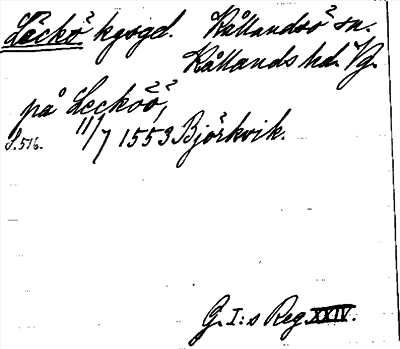 Läckö kgsgd. Kållandsö sn.
Kållands hd. Vg.
på Lecköö,
S. 516. 11/7 1553 Björkvik.
G. I:s Reg XXIV.